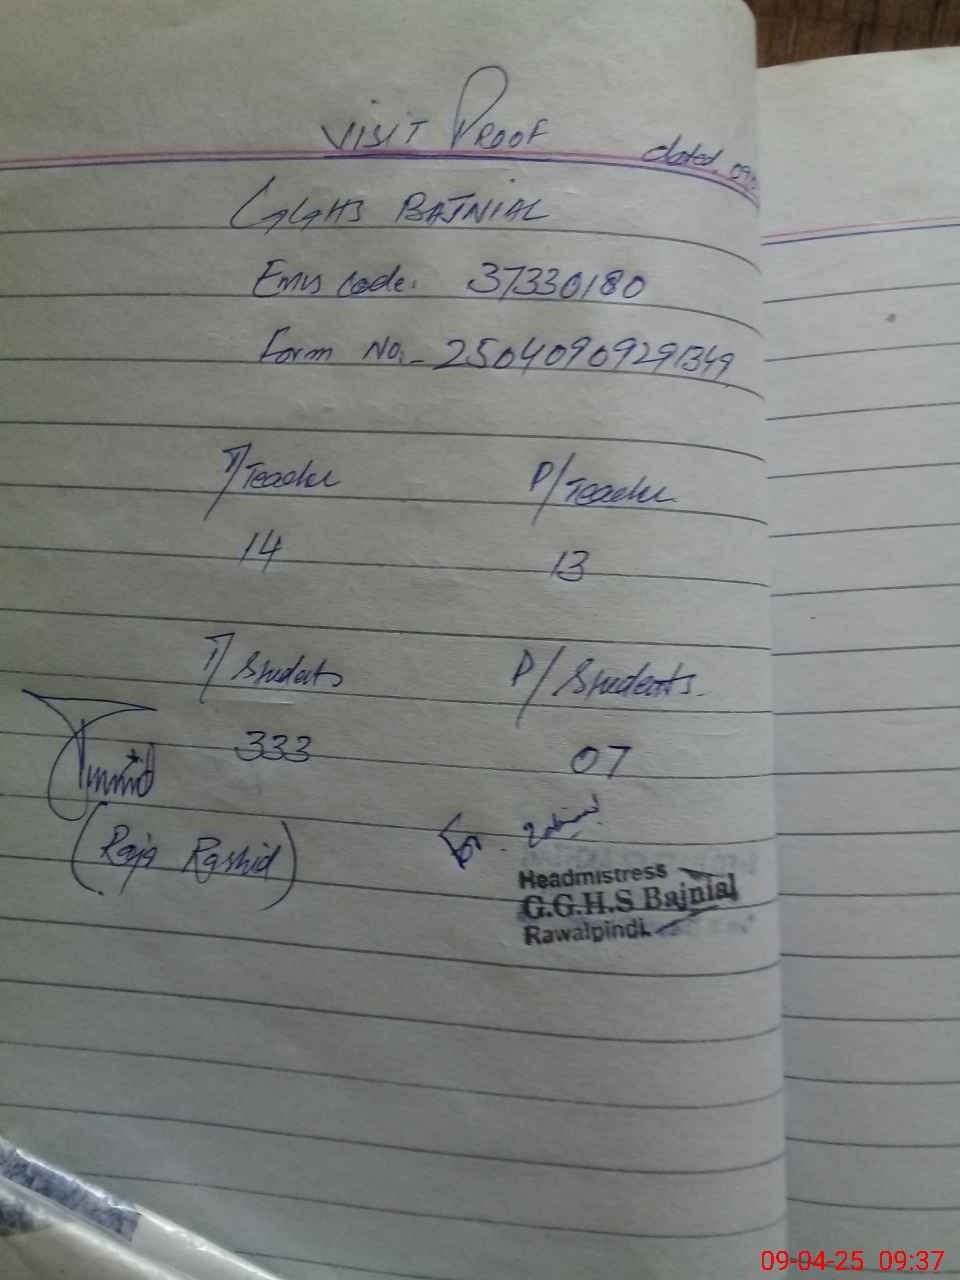 VISIT PROOF
dated. 09
GGHS BAJNIAL
Emis code: 37330180
Form No:- 25040909291349
T/Teacher P/Teacher
14 13
T/Students P/Students.
333 07
(Raja Rashid)
For.
Headmistress
G.G.H.S Bajnial
Rawalpindi.
09-04-25 09:37